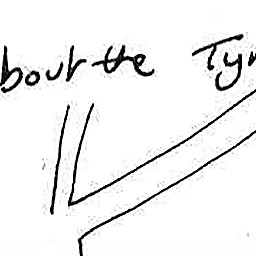 bout the Ty